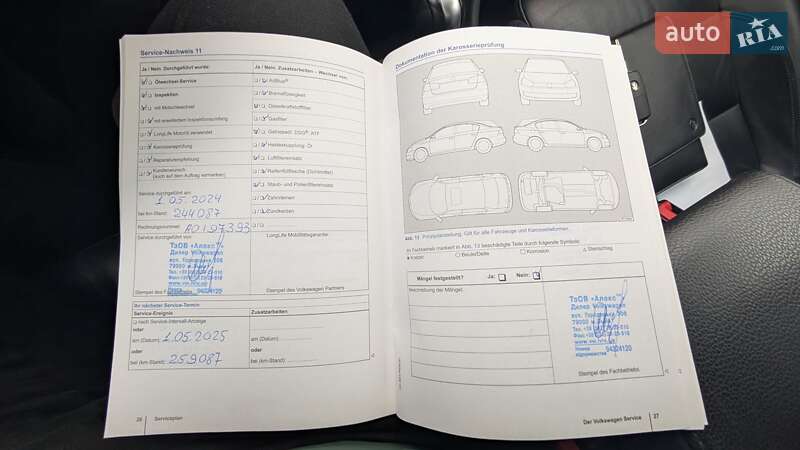 auto RIA.com
Service-Nachweis 11
Ja / Nein Durchgeführt wurde:
Ja / Nein Zusatzarbeiten - Wechsel von:
Ölwechsel-Service
AdBlue®
Inspektion
Bremsflüssigkeit
mit Motorölwechsel
Dieselkraftstofffilter
mit erweitertem Inspektionsumfang
Gasfilter
LongLife Motoröl verwendet
Getriebeöl: DSG®
Karosserieprüfung
Haldexkupplung: Öl
Reparaturempfehlung
Luftfiltereinsatz
Kundenwunsch
(auch auf dem Auftrag vermerken)
Reifenfüllflasche (Dichtmittel)
Staub- und Pollenfiltereinsatz
Service durchgeführt am:
1.05.2024
Zahnriemen
bei km-Stand:
244087
Zündkerzen
Rechnungsnummer:
AO197393
Service durchgeführt von:
LongLife Mobilitätsgarantie:
ТзОВ «Алекс
Дилер Volkswagen
79000
94324120
Stempel des
Stempel des Volkswagen Partners
Ihr nächster Service-Termin:
Service-Ereignis
Zusatzarbeiten
nach Service-Intervall-Anzeige
oder
am (Datum): 1.05.2025
am (Datum):
oder
oder
bei (km-Stand): 259087
bei (km-Stand):
26
Serviceplan
Dokumentation der Karosserieprüfung
Abb. 11 Prinzipdarstellung: Gilt für alle Fahrzeuge und Karosserieformen.
Im Fachbetrieb markiert in Abb. 13 beschädigte Teile durch folgende Symbole:
× Kratzer
○ Beule/Delle
□ Korrosion
△ Steinschlag
Mängel festgestellt?
Ja:
Nein:
Beschreibung der Mängel:
ТзОВ «Алекс
Дилер Volkswagen
79000
94324120
Stempel des Fachbetriebs
Der Volkswagen Service
27